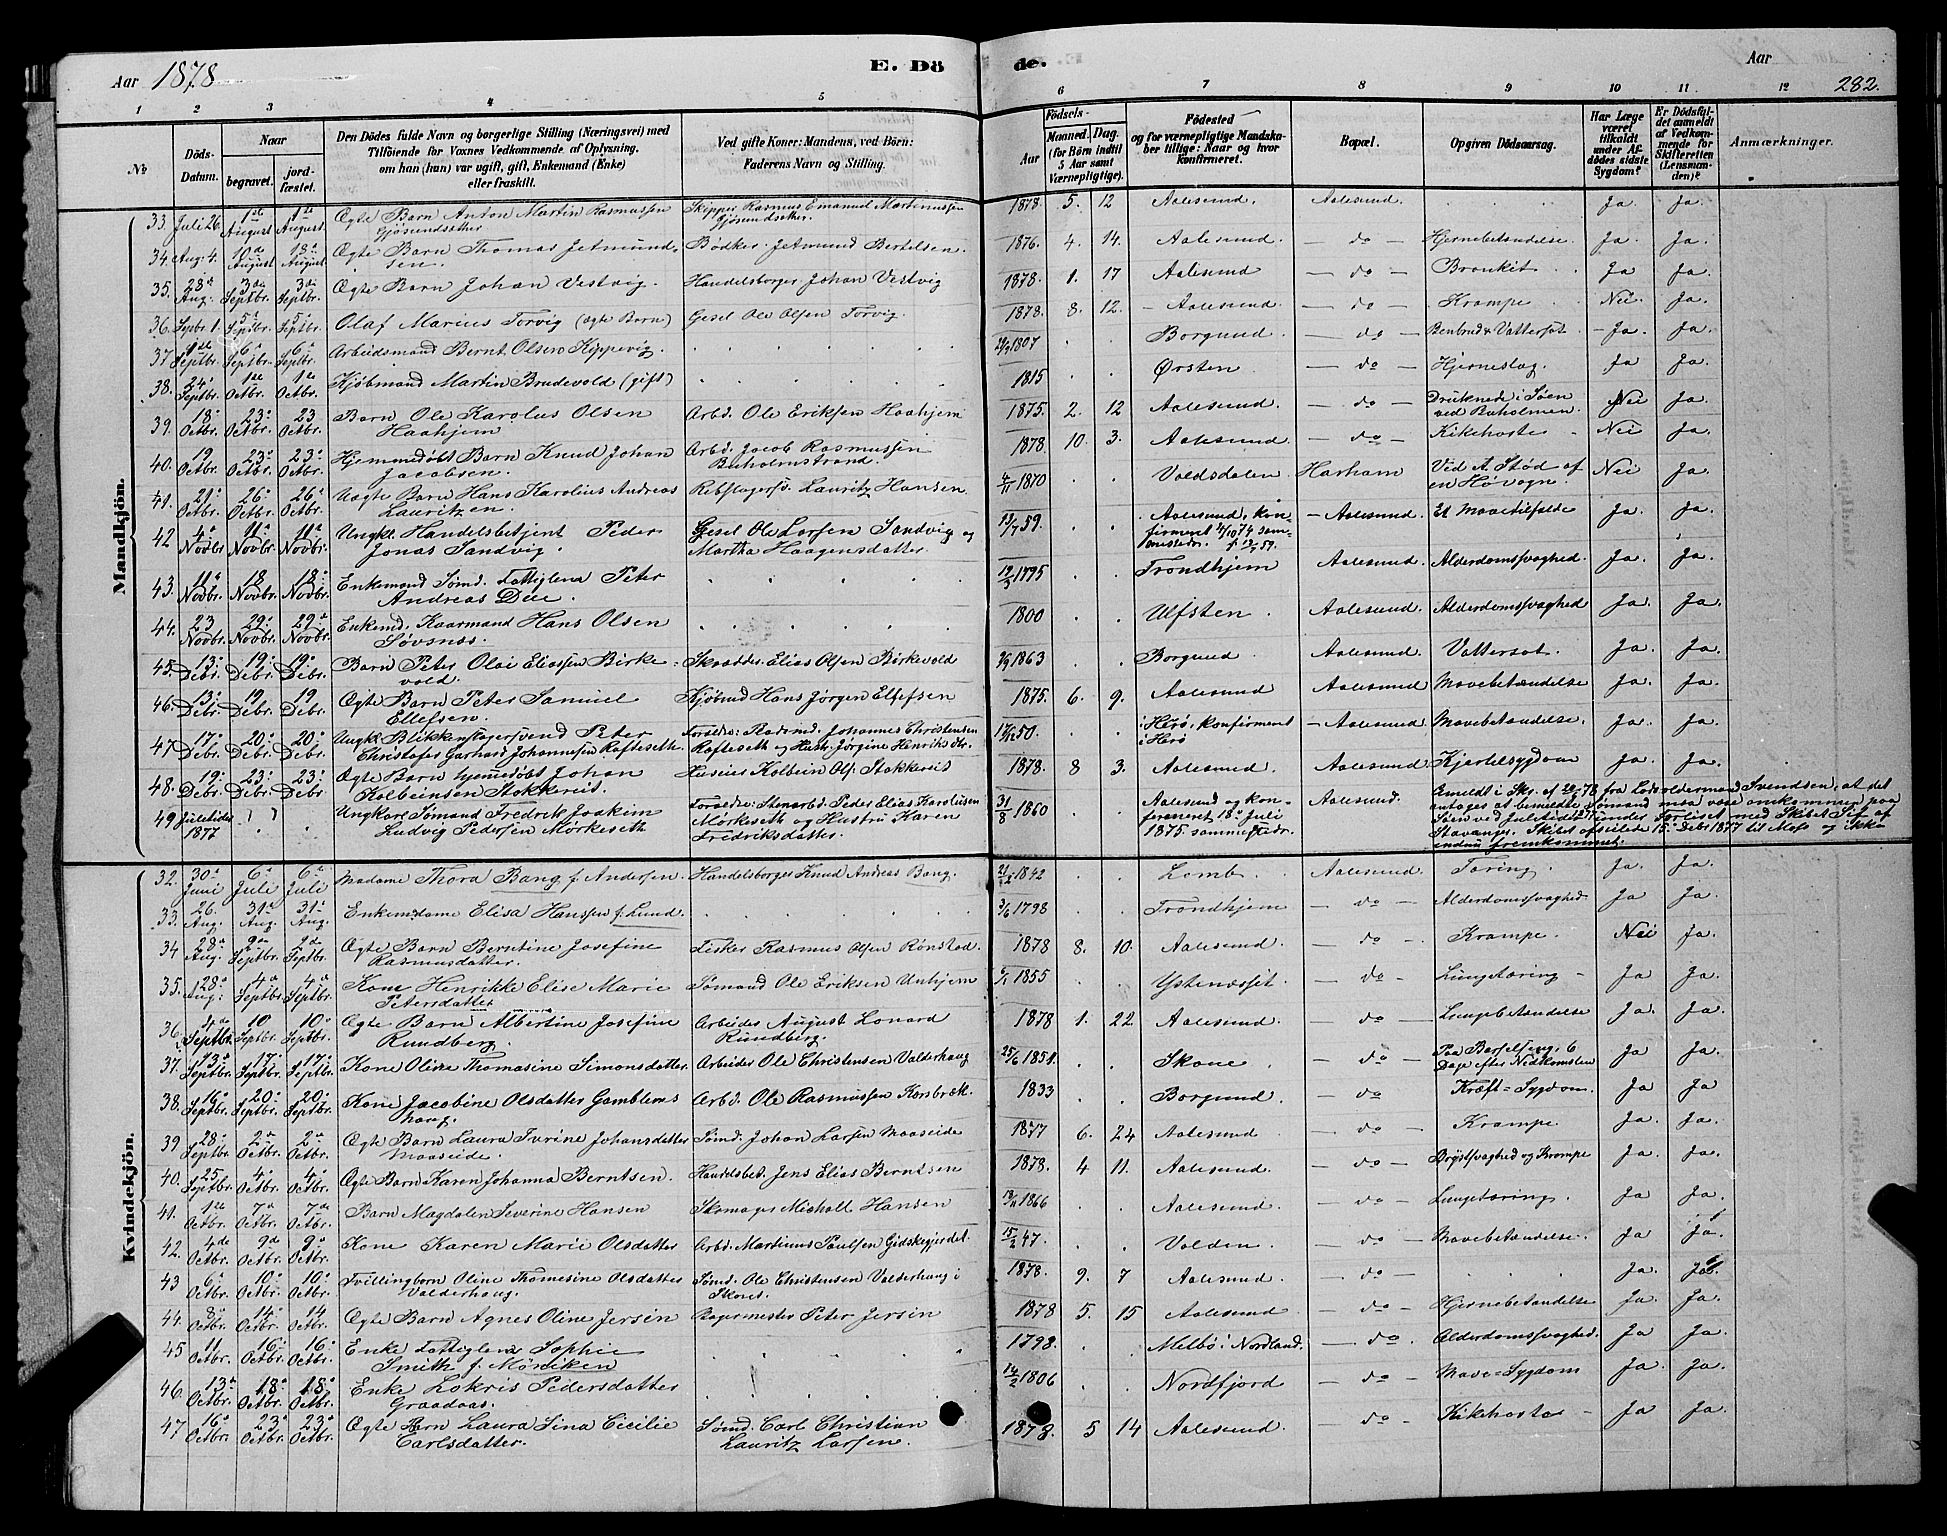 Aar 1878
E. Dö
de.
Aar
282.
1 2 3 4 5 6 7 8 9 10 11 12
№
Döds-Datum.
Naar
begravet.
jordfæstet.
Den Dödes fulde Navn og borgerlige Stilling (Næringsvei) med
Tilföiende for Voxnes Vedkommende af Oplysning,
om han (hun) var ugift, gift, Enkemand (Enke)
eller fraskilt.
Ved gifte Koner: Mandens, ved Börn:
Faderens Navn og Stilling.
Födsels-
Aar
Maaned. Dag.
(for Börn indtil
5 Aar samt
Værnepligtige).
Födested
og for værnepligtige Mandskaber tillige: Naar og hvor
konfirmeret.
Bopæl.
Opgiven Dödsaarsag.
Har Læge
været
tilkaldt
under Afdödes sidste
Sygdom?
Er Dödsfaldet anmeldt
af Vedkommende for
Skifteretten
(Lensmanden)?
Anmærkninger.
Mandkjön.
33. Juli 26. 1ste August 1ste August. Ægte Barn Anton Martin Rasmussen Gjøsundsæther Skipper Rasmus Emanuel Martinussen Gjøsundsæther. 1878. 5. 12 Aalesund. Aalesund. Ja Ja.
34. Aug. 4. August August Ægte Barn Thomas Jetmundsen. Bødker Jetmund Bertelsen. 1876. 4. 14. Aalesund — do — Hjernebetændelse. Ja. Ja.
35. 28de Aug. 3die Septbr. 3die Septbr. Ægte Barn Johan Vestvig. Handelsborger Johan Vestvig 1878. 1. 17 Aalesund — do — Bronkit. Ja Ja.
36. Septbr 1. 5te Septbr. 5te Septbr. Olaf Marius Torvig (ægte Barn) Gesel Ole Olsen Torvig. 1878. 8. 12. Aalesund. — do — Krampe Nei Ja.
37 Septbr. 6te Septbr. 6te Septbr. Arbeidsmand Bernt Olsen Kippervig. 1807 Borgund — do — Benbrud & Vattersot. Ja. Ja.
38. 24. Septbr. 1ste Octbr. 1ste Octbr. Kjøbmand Martin Brudevold (gift) 1815 Ørsten — do — Hjerneslag. Ja Ja.
39. 18. Octbr. 23. Octbr. 23 Octbr. Barn Ole Karolus Olsen Haahjem Arbd. Ole Eriksen Haahjem 1875. 2. 12 Aalesund. — do — Druknede i Søen ved Buholmen. Nei Ja.
40. 19. Octbr. 23. Octbr. 23. Octbr. Hjemmedøbt Barn Knud Johan Jacobsen. Arbd. Jacob Rasmussen Buholmstrand. 1878 10. 3. Aalesund. — do — Kikehoste. Nei Ja.
41. 21. Octbr. 26. Octbr. 26. Octbr. Uægte Barn Hans Karolius Andreas Lauritzen. Rebslagersv. Lauritz Hansen 4/11 1870 Voldsdalen Harham Ved et Stød af en Høvogn. Nei Ja.
42 4. Novbr 11. Novbr. 11. Novbr. Ungk. Handelsbetjent Peder Jonas Sandvig. Gesel Ole Larsen Sandvig og Martha Haagensdatter. 13/7 59. Aalesund, konfirmeret 4/10 74 sammesteds. Aalesund. Et Mavetilfælde Ja. Ja.
43. 11. Novbr. 18 Novbr. 18. Novbr. Enkemand Sømd. Fattiglem Peter Andreas Due. 1795 Trondhjem Aalesund. Alderdomssvaghed. Ja. Ja.
44. 23 Novbr. 29. Novbr. 29. Novbr. Enkemd. Haarmand Hans Olsen Søvsnæs. 1800 Ulfsten. Aalesund Alderdomssvaghed Ja. Ja.
45. 13. Debr. 19. Debr. 19. Debr. Barn Peter Olai Eliassen Birkevold. Skrædder Elias Olsen Birkevold 1863 Borgund Aalesund. Vattersot. Ja. Ja.
46. 13. Debr. 19. Debr. 19 Debr. Ægte Barn Peter Samuel Ellefsen. Kjøbmd Hans Jørgen Ellefsen 1875. 6. 9. Aalesund Aalesund. Mavebetændelse Ja. Ja.
47 17. Debr. 20. Debr. 20. Debr. Ungk. Blikkenslagersvend Peter Christofer Gerhard Johannesen Rafteseth. Forældre: Johannes Christensen Rafteseth og Hustr. Jørgine Henriksdtr. 50. i Herø, konfirmeret i Herø Aalesund. Mavebetændelse. Ja. Ja.
48. 19. Debr. 23. Debr. 23. Debr. Ægte Barn hjemmedøbt Johan Kolbeinsen Stokkereit. Huseier Kolbein Ols. Stokkereit 1878. 8 3. Aalesund. Aalesund Kjertelsygdom Ja. Ja.
49 Juletider 1877 Ungkarl Sømand Fredrik Joakim Ludvig Pedersen Mørkeseth Forældre: Stenarbd. Peder Elias Karolusen Mørkeseth og Hustru Karen Fredriksdatter. 31/8 1860 Aalesund og konfirmeret 18. Juli 1875 sammesteds. Aalesund. Anmeldt i Skr. af 20/2 78 fra Lodsoldermand Svendsen, at det antages at bemeldte Sømand maa være omkommen paa Søen ved Juletider 1877 under Forliset med Skibet Sif af Stavanger. Skibet afseilede 15. Debr 1877 til Moss og ikke endnu fremkommet.
Kvindekjön.
32. 30. Juni 6. Juli 6. Juli Madame Thora Bang f. Andersen. Handelsborger Knud Andreas Bang. 21/2 1842 Lomb. Aalesund. Tæring. Ja. Ja.
33. 26. Aug. 31. Aug. 31. Aug. Enkemadame Elisa Hanssen f. Lund. 3/6 1798 Trondhjem — do — Alderdomssvaghed. Ja Ja.
34 28. Aug. 2den Septbr. 2den Septbr. Ægte Barn Berntine Josefine Rasmusdatter. Fisker Rasmus Olsen Rønstad. 1878 8. 10. Aalesund. — do — Krampe. Nei Ja.
35. 28. Aug. 4. Septbr 4. Septbr. Kone Henrikke Elise Marie Petersdatter Sømand Ole Eriksen Unhjem 1855 Ystenæsset — do — Lungetæring Ja Ja.
36. Septbr. 10 Septbr. 10. Septbr. Ægte Barn Albertine Josefine Rundberg. Arbeider August Lonard Rundberg. 1878 1. 22. Aalesund. — do — Lungebetændelse Ja Ja.
37. 13. Septbr. 17. Septbr. 17. Septbr. Kone Oline Thomasine Simonsdatter. Arbeider Ole Christensen Valderhaug 25/6 1851. Skone — do — Paa Barselseng, 6 Dage efter Nedkomsten Ja Ja.
38. 16. Septbr. 20. Septbr. 20. Septbr. Kone Jacobine Olsdatter Gamblemshaug. Arbd. Ole Rasmussen Korsbræk. 1833 Borgund. — do — Kræft-Sygdom. Ja Ja
39 28. Septbr. 2. Octbr. 2. Octbr. Ægte Barn Laura Turine Johansdatter Maaseide. Sømd. Johan Larsen Maaseide 1877 6. 24 Aalesund — do — Krampe Ja. Ja.
40. 25 Septbr. 4. Octbr. 4. Octbr. Ægte Barn Karen Johanna Berntsen. Handelsbet. Jens Elias Berntsen 1878. 4 11. Aalesund. — do — Brystsvaghed og Krampe Ja. Ja.
41. 1ste Octbr. 7de Octbr. 7de Octbr. Barn Magdalen Severine Hansen Skomager Michall Hansen 1866 Aalesund. — do — Lungetæring. Ja Ja.
42. 4de Octbr. 9de Octbr. 9. Octbr. Kone Karen Marie Olsdatter Arbd. Martinus Paulsen Gidskegjerdet. 15/2 47. Volden. — do — Mavebetændelse. Ja Ja.
43 6. Octbr. 10. Octbr. 10. Octbr. Tvillingbarn Oline Thomesine Olsdatter Valderhaug. Sømd. Ole Christensen Valderhaug i Skoret. 1878. 9. 7 Aalesund — do — Ja. Ja.
44. 8. Octbr. 14. Octbr. 14 Octbr. Ægte Barn Agnes Oline Jersin Bagermester Peter Jersin 1878 5. 15 Aalesund — do — Hjernebetændelse Ja. Ja.
45 11 Octbr. 16. Octbr. 16. Octbr. Enke Fattiglem Sophie Smith f. Møniken 1798. Melbö i Nordland. — do — Alderdomssvaghed. Ja Ja.
46. 13. Octbr. 18. Octbr. 18. Octbr. Enke Lokris Pedersdatter Graadaas. 14/2 1806 Nordfjord — do — Mave-Sygdom Ja. Ja.
47 16. Octbr. 23. Octbr. 23. Octbr. Ægte Barn Laura Sina Cicilie Carlsdatter. Sømd. Carl Christian Lauritz Larsen. 1878. 5 14 Aalesund. — do — Kikehoste Ja Ja.